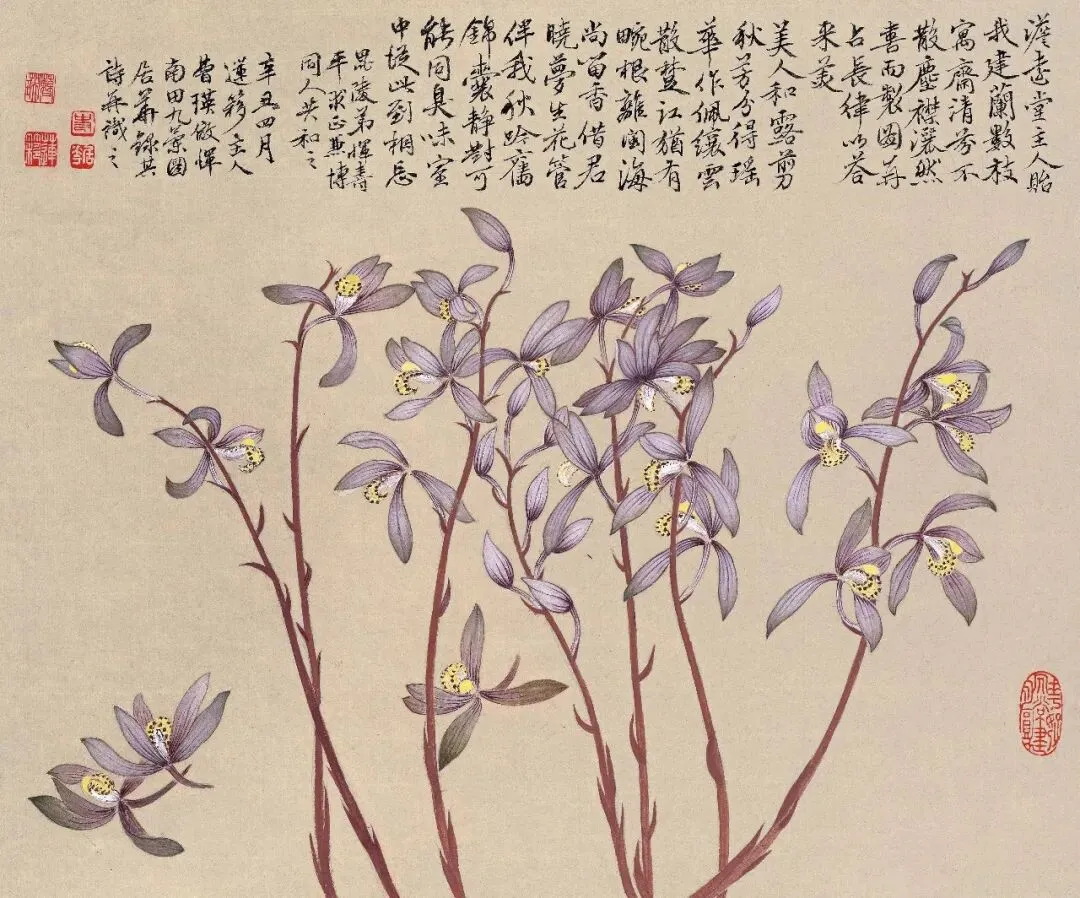 澹堂主人貽
我建蘭數枝
寓齋清芬不
散塵襟灑然
喜而製圖并
占長律以答
来美
美人和露剪
秋芳分得瑶
華作佩纕雲
散楚江猶有
畹根離閩海
尚留香借君
曉夢生花管
伴我秋吟舊
錦囊静對可
能同臭味室
中從此到相忘
毘陵弟惲壽
平求正兼博
同人共和之
辛丑四月
蓮主人
瑛倣惲
南田九圖
居華錄其
詩并識之